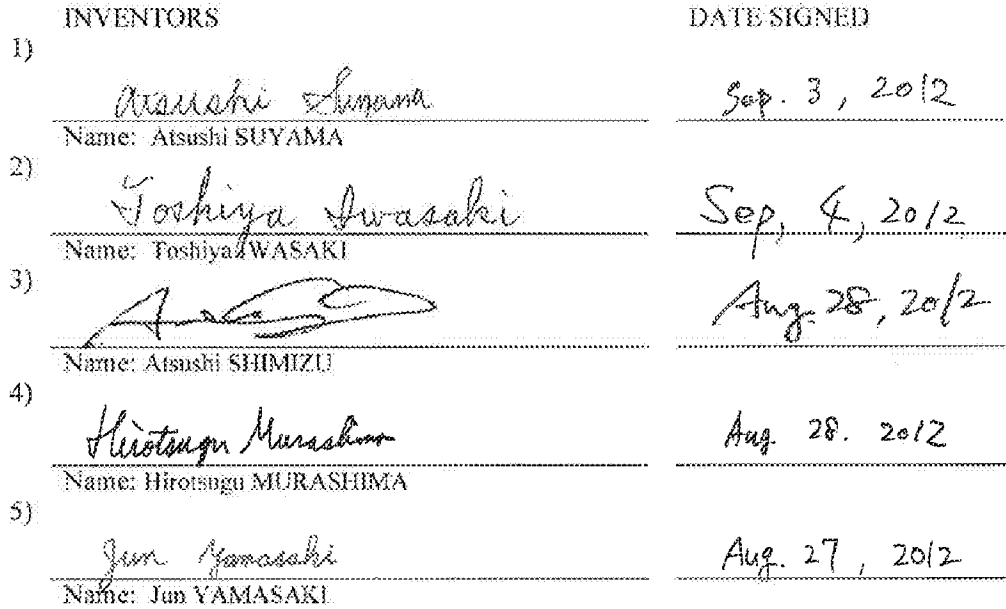 INVENTORS DATE SIGNED
1)
Atsushi Suyama Sep. 3, 2012
Name: Atsushi SUYAMA
2)
Toshiya Iwasaki Sep, 4, 2012
Name: Toshiya IWASAKI
3)
Aug. 28, 2012
Name: Atsushi SHIMIZU
4)
Hirotsugu Murashima Aug. 28. 2012
Name: Hirotsugu MURASHIMA
5)
Jun Yamasaki Aug. 27, 2012
Name: Jun YAMASAKI